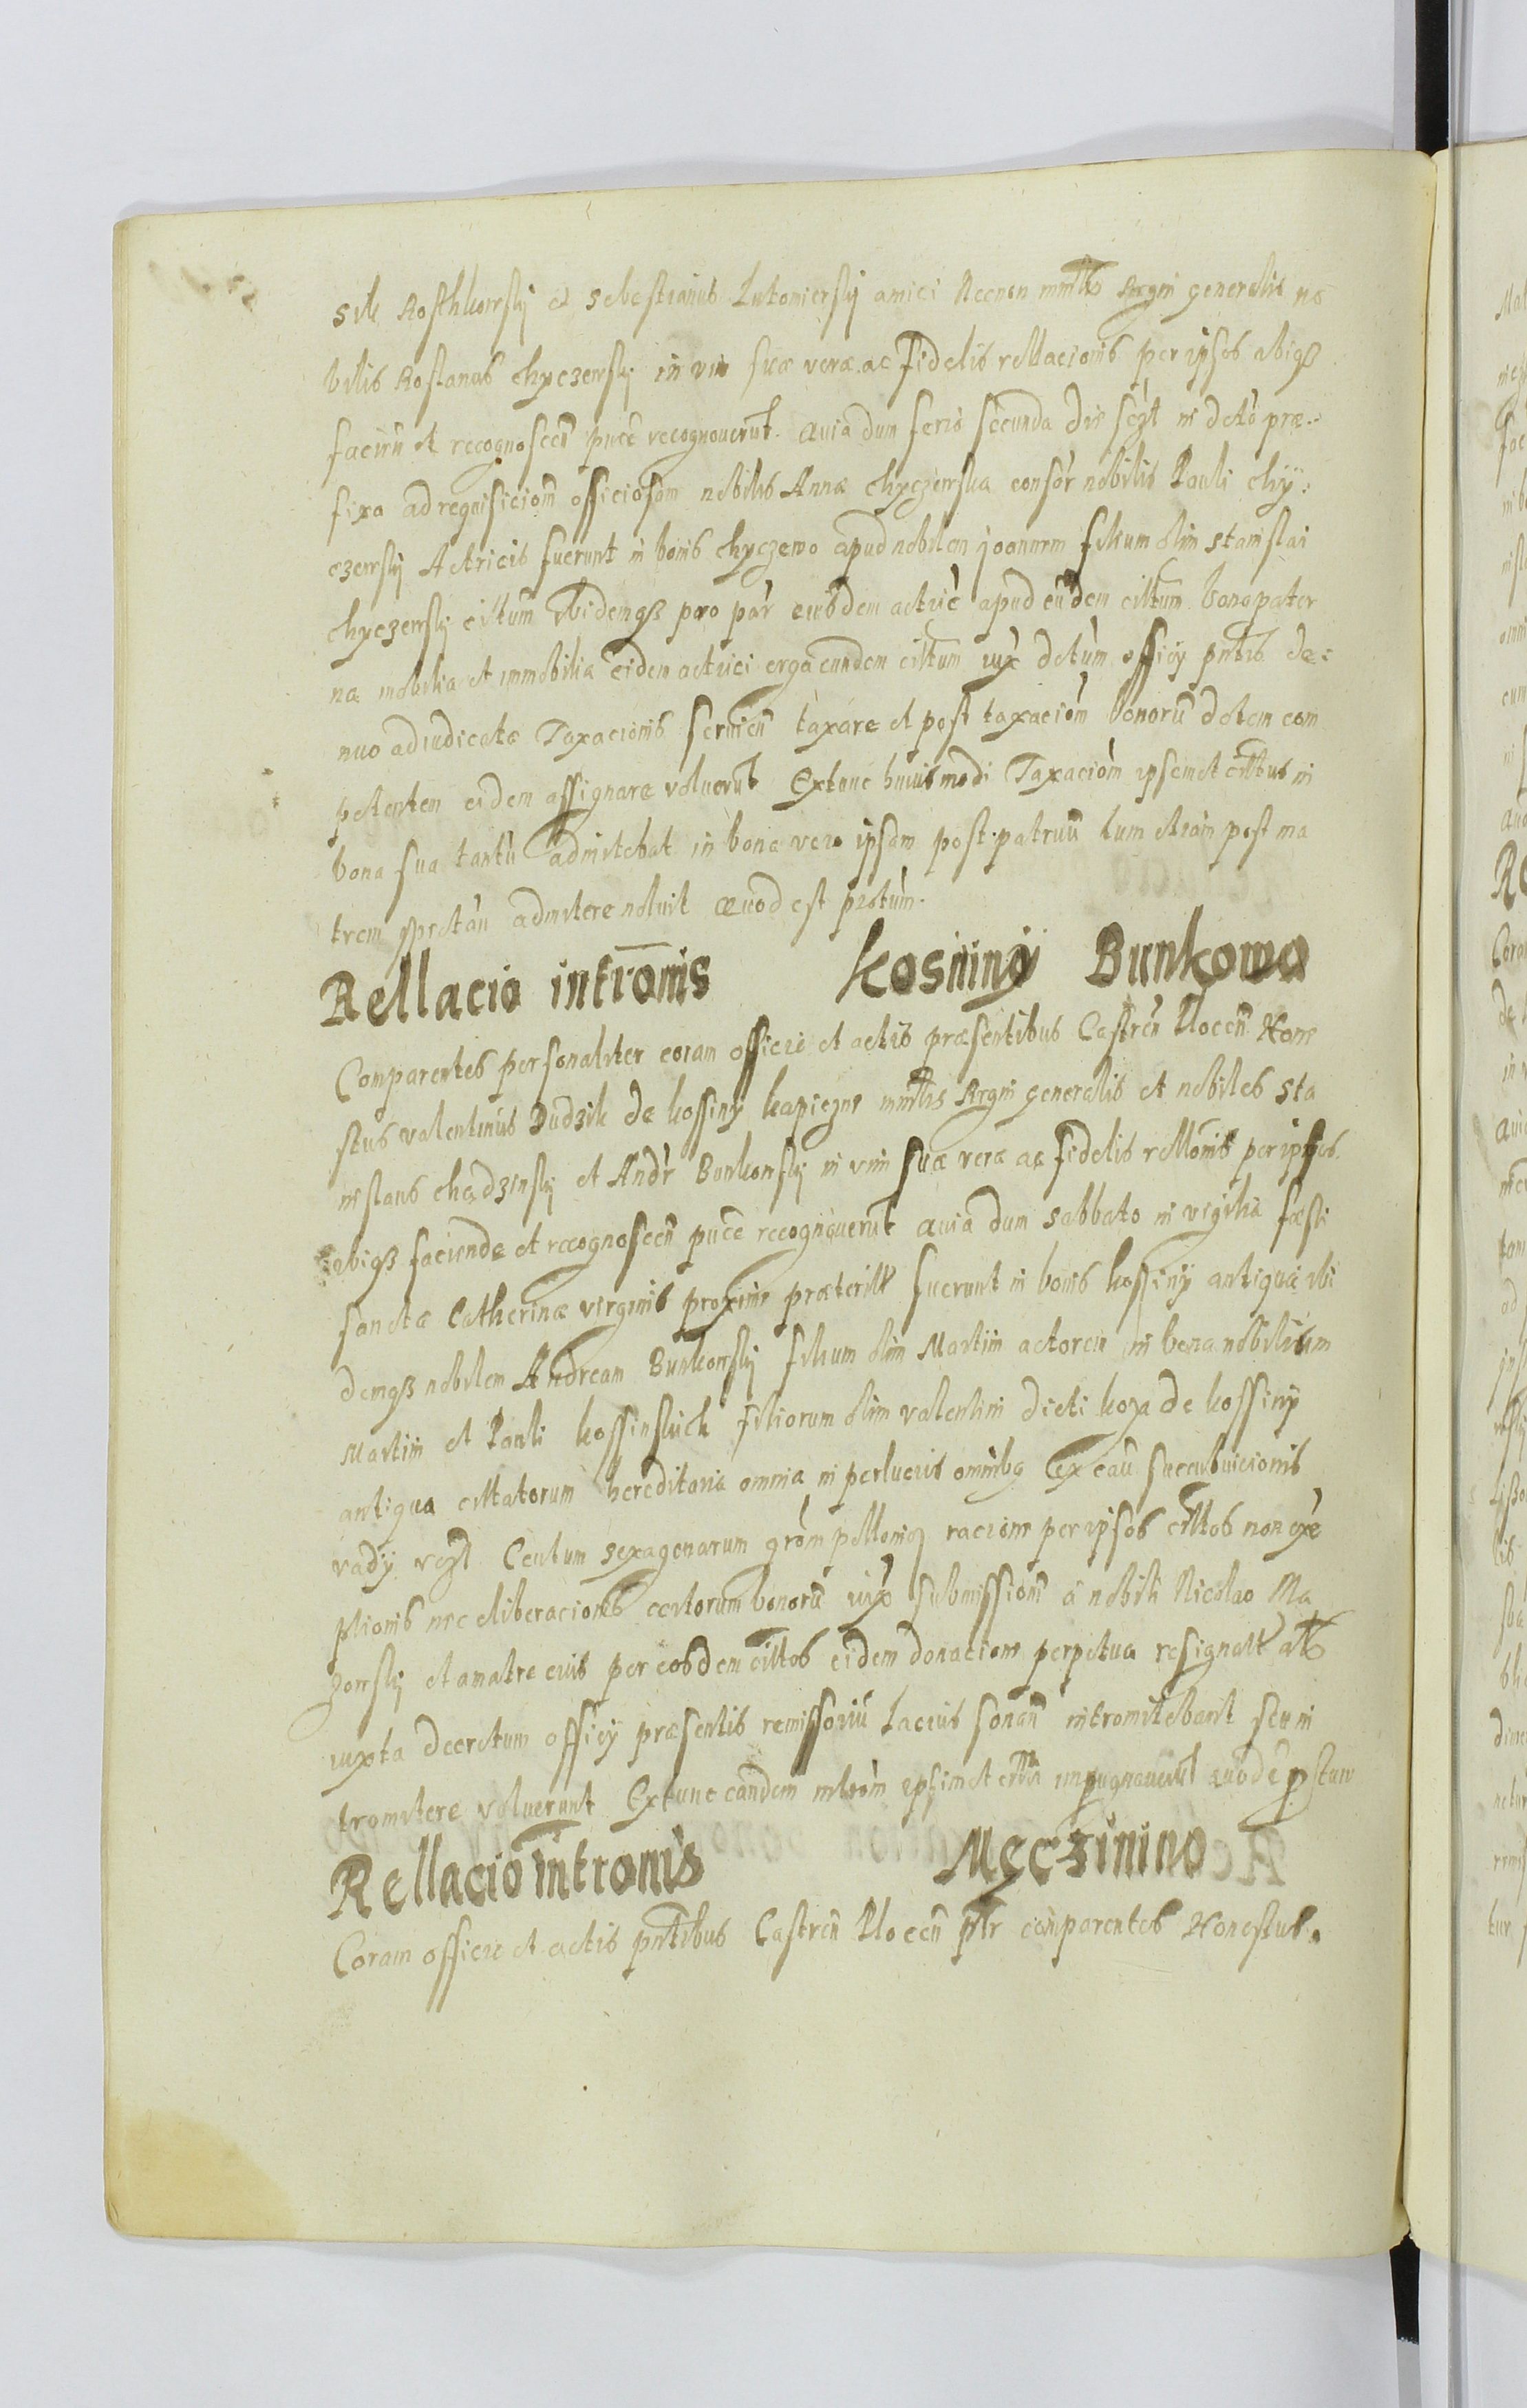 sik Rosthkowskÿ et Sebestianus Lutomierskÿ amici Necnon mintlis Regni generalis no
bilis Rostanus chyczewskÿ in vim suæ veræ ac fidelis rellacionis per ipsos abigß
faciēn et recognoscēn puce recognouerūt. Quia dum feria secunda die sēqt in deto præ:
fixa ad requisiciom̄ officiosam nobilis Anna chyczewska consōr nobilis Pauli chÿ:
czewskÿ Actricis fuerunt in bonis chyczewo apud nobilem joannem filium olim stanislai
chyczewskÿ ciltum Ibidemqß pro pār eiusdem actric̄ apud eūdem ciltum bona pater
na mobilia et immobilia eidem actrici erga eundem ciltum iux̄ detum officÿ pntis de:
nuo adiudicata Taxacionis servien̄ taxare et post taxaciom̄ bonorū dotem com
petentem eidem assignare voluerūt Extunc huiusmodi Taxaciom̄ ipsemet ciltus in
bona sua tantū admitebat in bona vero ipsam post patruū tum etiam post ma
trem spectan̄ admitere noluit Quod est protūm.
Rellacio intromis kosininÿ Bunkowo
Comparentes personaliter coram officio et actis præsentibus Castren̄ Plocen̄ Hone
stus valentinus Dudzik de kossinÿ kapiczne mintlis Regni generalis et nobiles sta
nislaus chadzinskÿ et Andr̄ Bonkowskÿ in vim suæ veræ ac fidelis rellonis per ipsos
abigß faciende et recognoscēn puce recognouerūt Quia dum sabbato in vigilia festi
sanctæ Catherinæ virginis proxime præterite fuerunt in bonis kossinÿ antiqua ibi
demqß nobilem Andream Bunkowskÿ filium olim Martini actorem in bona nobilium
Martini et Pauli kossinskich filiorum olim valentini dicti koza de kossinÿ
antiqua ciltatorum hereditaria omnia in perlucris omnibq Ex caū succubuicionis
vadÿ vēzt Centum sexagenarum grōm pollonicq racione per ipsos ciltos non exē
ptionis nec eliberacionis certorum bonorū iux̄ submissiom̄ a nobili Nicolao Ma
zowskÿ et a matre eius per eosdem ciltos eidem donacione perpetua resignatt als
iuxta decretum officÿ præsentis remissoriū lacius sonan̄ intromitebant seu in
tromitere voluerunt Extunc eandem introm̄ ipsimet cilti impugnauerūt quod ē protum
Rellacio intromis Meczinino
Coram officio et actis pntibus Castren̄ Plocen̄ plr comparentes Honestus.